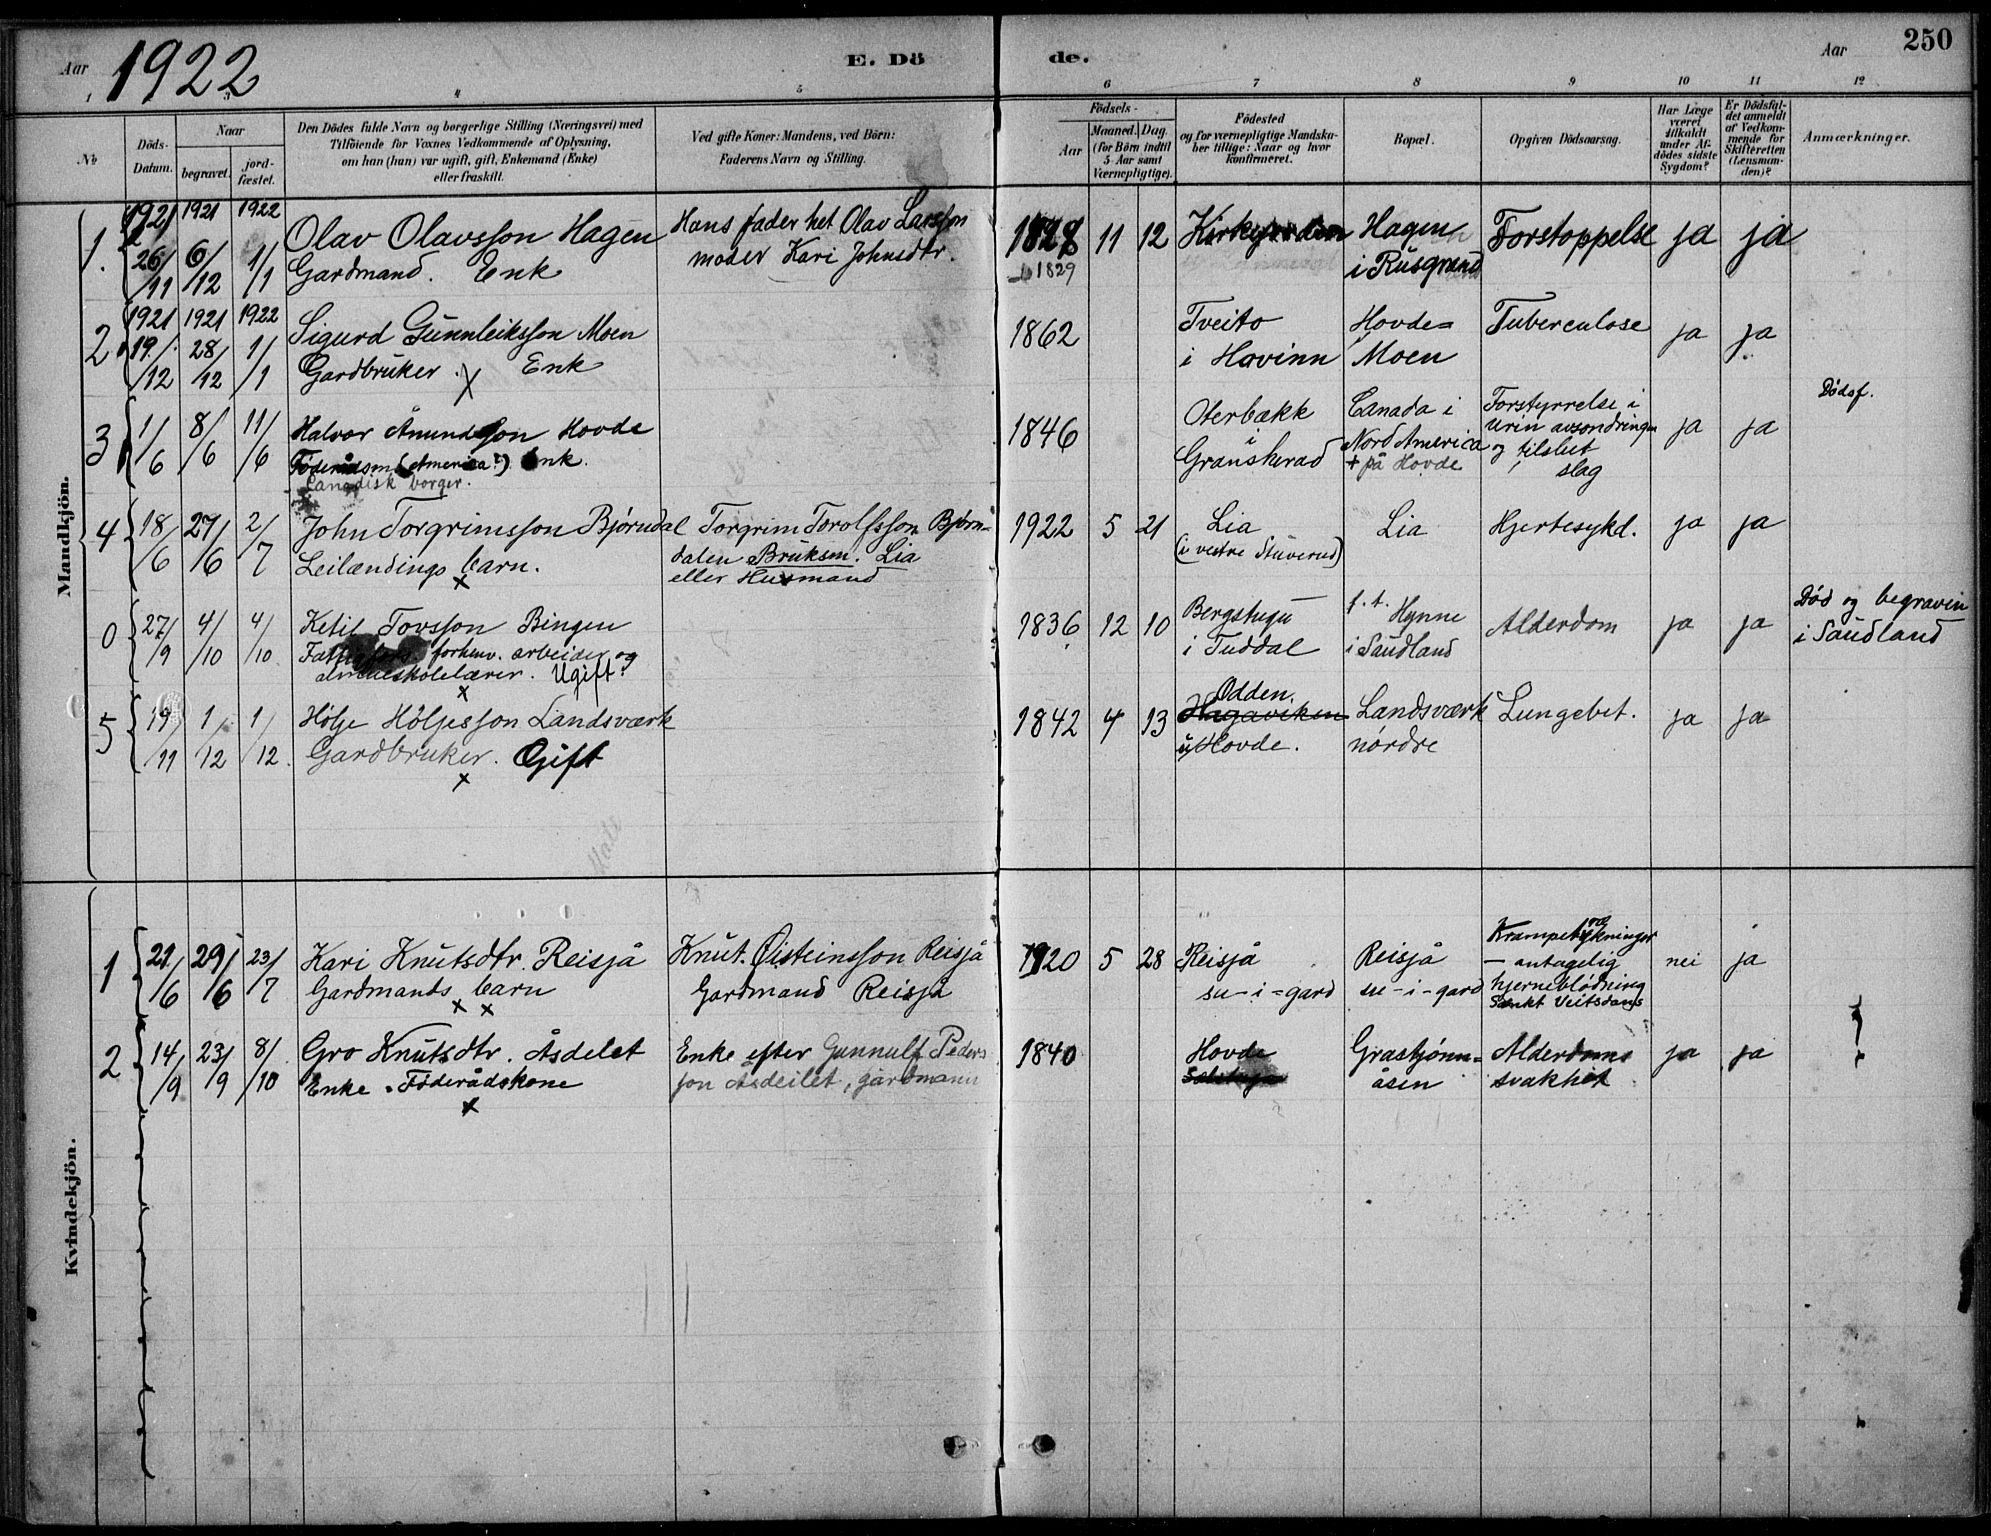 Aar 1922 E. Döde. Aar 250
1 3 4 5 6 7 8 9 10 11 12
No
Döds-Datum.
Naar
begravet.
jord-fæstet.
Den Dödes fulde Navn og borgerlige Stilling (Næringsvei) med
Tilföiende for Voxnes Vedkommende af Oplysning,
om han (hun) var ugift, gift, Enkemand (Enke)
eller fraskilt.
Ved gifte Koner: Mandens, ved Börn:
Faderens Navn og Stilling.
Födsels-
Aar
Maaned. Dag.
(for Börn indtil
5 Aar samt
Værnepligtige).
Födested
og for værnepligtige Mandska-
ber tillige: Naar og hvor
konfirmeret.
Bopæl.
Opgiven Dödsaarsag.
Har Læge
været
tilkaldt
under Af-
dödes sidste
Sygdom?
Er Dödsfal-
det anmeldt
af Vedkom-
mende for
Skifteretten
(Lensman-
den)?
Anmærkninger.
Mandkjön.
1.
1921 26/11
1921 6/12
1922 1/1
Olav Olavsson Hagen
Gardmand. Enk
Hans fader het Olav Larsson
moder Kari Johnsdtr.
1828 11 12
1829
Kirkejorden
Hagen
i Rusgrend
Forstoppelse
ja ja
2
1921 19/12
1921 28/12
1922 1/1
Sigurd Gunnleiksson Moen
Gardbruker. x Enk
1862
Tveito
i Hovinn
Hovde=
Moen
Tuberculose
ja ja
3
1/6 8/6 11/6
Halvor Åmundson Hovde
Föderådsm (America?) Enk.
Canadisk borger.
1846
Oterbækk
i
Gransherad
Canada i
Nord America
+ på Hovde
Forstyrrelse i
Urin avsondringen
og tilslut
slag
ja ja
Dödsf.
4
18/6 27/6 2/7
John Torgrimsson Bjørndal
Leilændings barn.
x
Torgrim Torolfsson Bjørn-
dalen Bruksm. Lia
eller Husmand
1922 5 21
Lia
(i vestre Stuverud)
Lia
Hjertesykd.
ja ja
0
27/9 4/10 4/10
Ketil Tovsson Bingen
forhenv. arbeider og
almueskolelærer. Ugift.
x
1836 12 10
Bergstugu
i Tuddal
f.t. Hynne
i Saudland
Alderdom
ja ja
Død og begravin
i Saudland
5
19/11 1/12 1/12.
Hølje Höljesson Landsværk
Gardbruker. Gift
x
1842 4 13
Odden.
Hagaviken
u/Hovde.
Landsværk
nördre
Lungebet.
ja ja
Kvindekjön.
1
21/6 29/6 23/7
Kari Knutsdtr. Reisjå
Gardmands barn
x x
Knut Øisteinsson Reisjå
Gardmand Reisjå
1920 5 28
Reisjå
su-i-gard
Reisjå
su-i-gard
— antagelig
hjerneblödning
Sankt Veitsdans
nei ja
2
14/9 23/9 8/10
Gro Knutsdtr. Åsdelet
Enke. Föderådskone
x
Enke efter Gunnulf Peders
son Åsdeilet, gardmann
1840
Hovde
Grastjønn=
åsen
Alderdoms
svakhet
ja ja